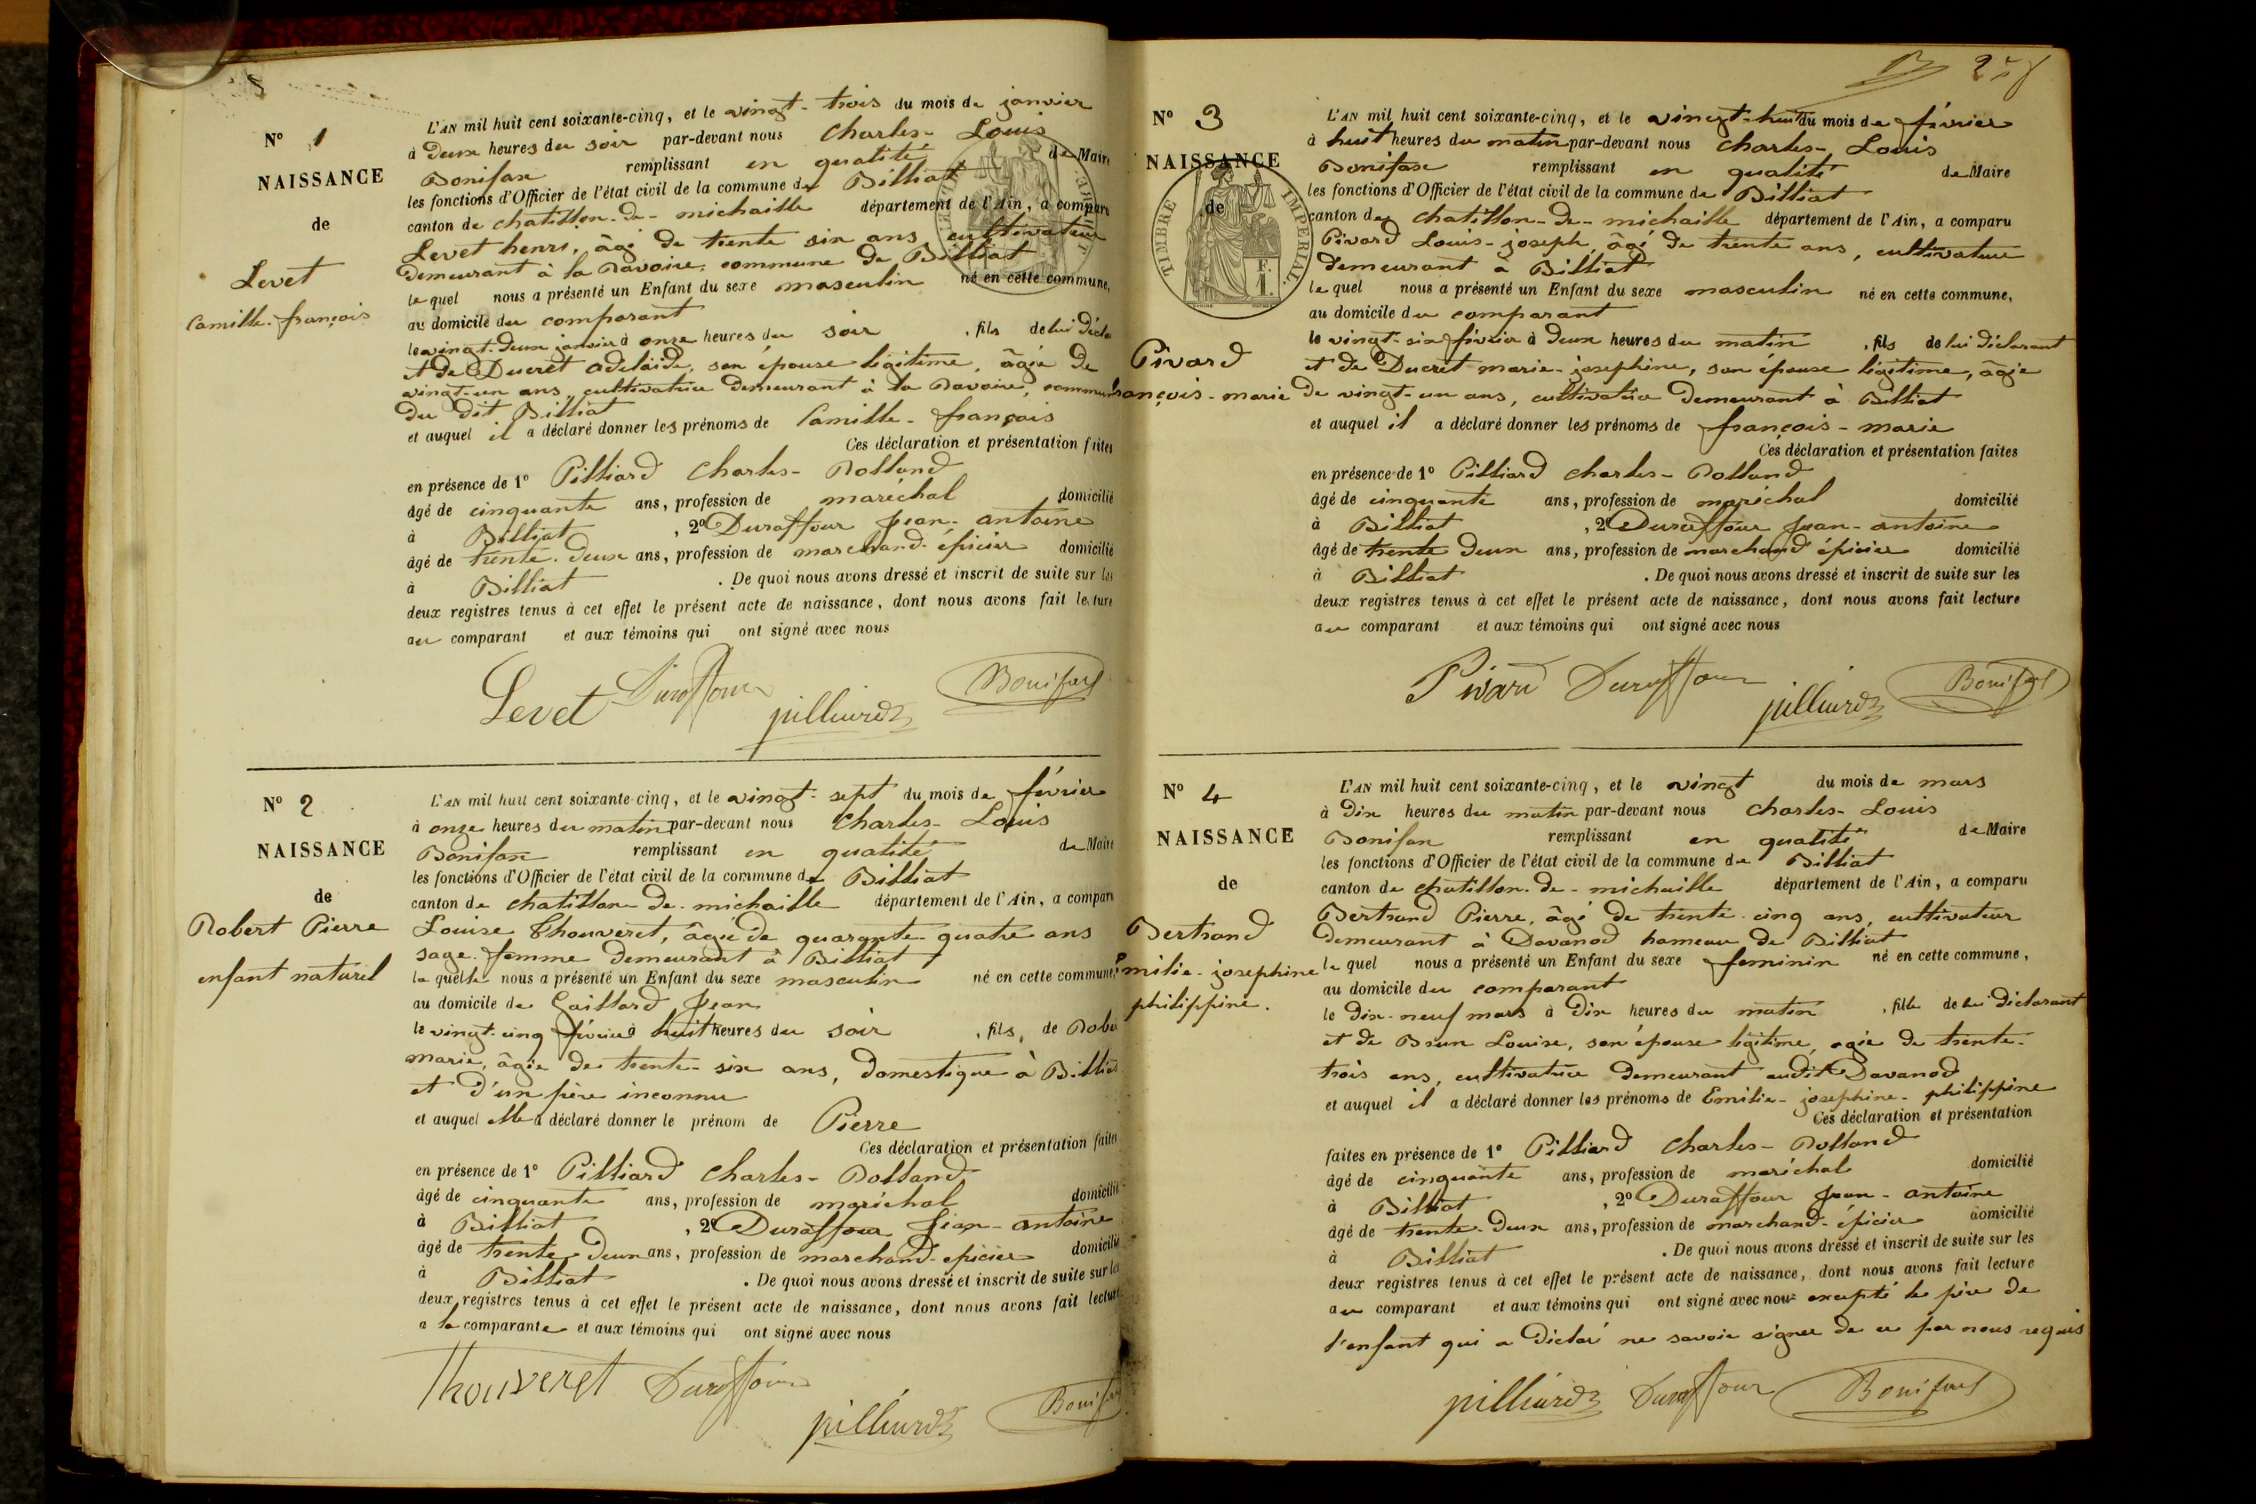 N° 1
NAISSANCE
de
Levet
Camille-françois
L'AN mil huit cent soixante-cinq, et le vingt-trois du mois de janvier
à deux heures du soir par-devant nous Charles-Louis
Bonifax remplissant en qualité de Maire
les fonctions d'Officier de l'état civil de la commune de Billiat
canton de chatillon-de-michaille département de l'Ain, a comparu
Levet henri, âgé de trente six ans cultivateur
demeurant à la Davoire, commune de Billiat
lequel nous a présenté un Enfant du sexe masculin né en cette commune,
au domicile du comparant
le vingt-deux janvier à onze heures du soir, fils de lui décla
et de Ducret adelaide, son épouse légitime, âgée de
vingt-un ans, cultivatrice demeurant à la Davoire, commune
du dit Billiat
et auquel il a déclaré donner les prénoms de Camille-françois
Ces déclaration et présentation faites
en présence de 1° Pilliard Charles-Rolland
âgé de cinquante ans, profession de maréchal domicilié
à Billiat, 2° Duraffour Jean-antoine
âgé de trente-deux ans, profession de marchand-épicier domicilié
à Billiat. De quoi nous avons dressé et inscrit de suite sur les
deux registres tenus à cet effet le présent acte de naissance, dont nous avons fait lecture
au comparant et aux témoins qui ont signé avec nous
Levet Duraffour pilliard Bonifax
N° 2
NAISSANCE
de
Robert Pierre
enfant naturel
L'AN mil huit cent soixante-cinq, et le vingt-sept du mois de février
à onze heures du matin par-devant nous Charles-Louis
Bonifax remplissant en qualité de Maire
les fonctions d'Officier de l'état civil de la commune de Billiat
canton de chatillon-de-michaille département de l'Ain, a comparu
Louise Thouveret, âgée de quarante quatre ans
sage-femme demeurant à Billiat
laquelle nous a présenté un Enfant du sexe masculin né en cette commune,
au domicile de Gaillard Jean
le vingt-cinq février à huit heures du soir, fils, de Rob
marie, âgée de trente-six ans, domestique à Billiat
et d'un père inconnu
et auquel elle a déclaré donner le prénom de Pierre
Ces déclaration et présentation faites
en présence de 1° Pilliard Charles-Rolland
âgé de cinquante ans, profession de maréchal domicilié
à Billiat, 2° Duraffour Jean-antoine
âgé de trente-deux ans, profession de marchand-épicier domicilié
à Billiat. De quoi nous avons dressé et inscrit de suite sur les
deux registres tenus à cet effet le présent acte de naissance, dont nous avons fait lecture
a la comparante et aux témoins qui ont signé avec nous
Thouveret Duraffour pilliard Bonifax
N° 3
NAISSANCE
de
TIMBRE IMPERIAL.
F. 1.
Pivard
françois-marie
L'AN mil huit cent soixante-cinq, et le vingt-huit du mois de février
à huit heures du matin par-devant nous Charles-Louis
Bonifax remplissant en qualité de Maire
les fonctions d'Officier de l'état civil de la commune de Billiat
canton de chatillon-de-michaille département de l'Ain, a comparu
Pivard Louis-joseph, âgé de trente ans, cultivateur
demeurant à Billiat
lequel nous a présenté un Enfant du sexe masculin né en cette commune,
au domicile du comparant
le vingt-six février à deux heures du matin, fils de lui déclarant
et de Ducret marie-josephine, son épouse légitime, âgée
de vingt-un ans, cultivatrice demeurant à Billiat
et auquel il a déclaré donner les prénoms de françois-marie
Ces déclaration et présentation faites
en présence de 1° Pilliard Charles-Rolland
âgé de cinquante ans, profession de maréchal domicilié
à Billiat, 2° Duraffour Jean-antoine
âgé de trente deux ans, profession de marchand épicier domicilié
à Billiat. De quoi nous avons dressé et inscrit de suite sur les
deux registres tenus à cet effet le présent acte de naissance, dont nous avons fait lecture
au comparant et aux témoins qui ont signé avec nous
Pivard Duraffour pilliard Bonifax
N° 4
NAISSANCE
de
Bertrand
Emilie-josephine
philippine.
L'AN mil huit cent soixante-cinq, et le vingt du mois de mars
à dix heures du matin par-devant nous Charles-Louis
Bonifax remplissant en qualité de Maire
les fonctions d'Officier de l'état civil de la commune de Billiat
canton de chatillon-de-michaille département de l'Ain, a comparu
Bertrand Pierre, âgé de trente-cinq ans, cultivateur
demeurant à Davanod hameau de Billiat
lequel nous a présenté un Enfant du sexe feminin né en cette commune,
au domicile du comparant
le dix-neuf mars à dix heures du matin, fille de lui déclarant
et de Brun Louise, son épouse légitime, agée de trente-
trois ans, cultivatrice demeurant audit Davanod
et auquel il a déclaré donner les prénoms de Emilie-josephine-philippine
Ces déclaration et présentation
faites en présence de 1° Pilliard Charles-Rolland
âgé de cinquante ans, profession de maréchal domicilié
à Billiat, 2° Duraffour Jean-antoine
âgé de trente-deux ans, profession de marchand-épicier domicilié
à Billiat. De quoi nous avons dressé et inscrit de suite sur les
deux registres tenus à cet effet le présent acte de naissance, dont nous avons fait lecture
au comparant et aux témoins qui ont signé avec nous excepté le père de
l'enfant qui a déclaré ne savoir signer de ce par nous requis
pilliard Duraffour Bonifax